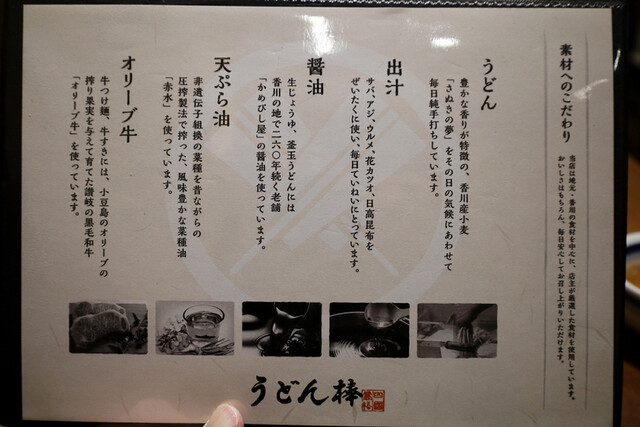 素材へのこだわり
当店は地元・香川の食材を中心に、店主が厳選した食材を使用しています。
おいしさはもちろん、毎日安心してお召し上がりいただけます。
うどん
豊かな香りが特徴の、香川産小麦
「さぬきの夢」をその日の気候にあわせて
毎日純手打ちしています。
出汁
サバ、アジ、ウルメ、花カツオ、日高昆布を
ぜいたくに使い、毎日ていねいにとっています。
醤油
生じょうゆ、釜玉うどんには
香川の地で二六〇年続く老舗
「かめびし屋」の醤油を使っています。
天ぷら油
非遺伝子組換の菜種を昔ながらの
圧搾製法で搾った、風味豊かな菜種油
「赤水」を使っています。
オリーブ牛
牛つけ麺、牛すきには、小豆島のオリーブの
搾り果実を与えて育てた讃岐の黒毛和牛
「オリーブ牛」を使っています。
うどん棒